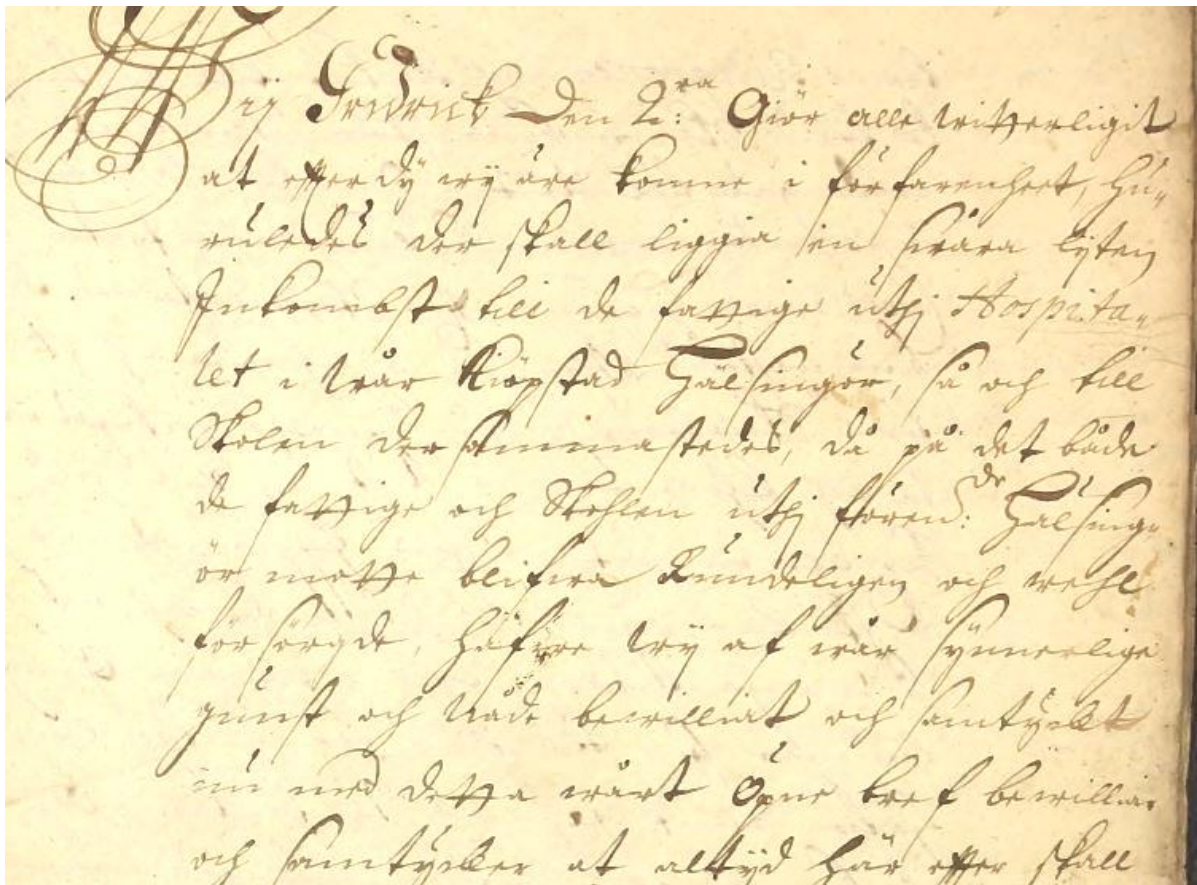 Wij Fredrick den 2:ra Giör alle witterligit
at effter dÿ wÿ äre komne i förfarenheet, hu-
ruledes der skall liggia en swåra lijten
Inkombst till de fattige uthj Hospita-
let i wår Kiöpstad Hälsingör, så och till
Skolen der sammastedes, då på det både
de fattige och Skohlen uthj förend:de Hälsing-
ör motte blifwa Rundeligen och wehl
försörgde, hafwe wÿ af wår synnerlige
gunst och nåde bewilliat och samtyckt
nu med detta wårt Öpne bref bewilliar
och samtycker at altÿd här effter skall